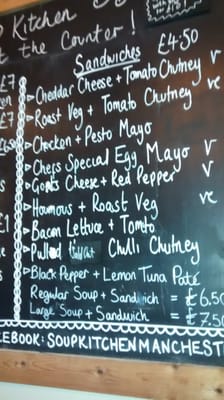 Kitchen
t the Counter!
Sandwiches £4.50
£7 Cheddar Cheese + Tomato Chutney V
£7 Roast Veg + Tomato Chutney ve
Chicken + Pesto Mayo
Chefs Special Egg Mayo V
Goats Cheese + Red Pepper V
Houmous + Roast Veg ve
Bacon Lettuce + Tomto
Pulled Chilli Chutney
Black Pepper + Lemon Tuna Paté
Regular Soup + Sandwich = £6.50
Large Soup + Sandwich = £7.50
CEBOOK: SOUPKITCHENMANCHEST